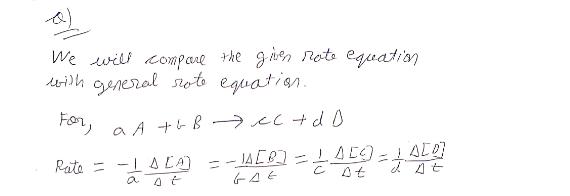 a)
We will compare the given rate equation
with general rate equation.
For, a A + b B → c C + d D
Rate = -1/a Δ[A]/Δt = -1/b Δ[B]/Δt = 1/c Δ[C]/Δt = 1/d Δ[D]/Δt